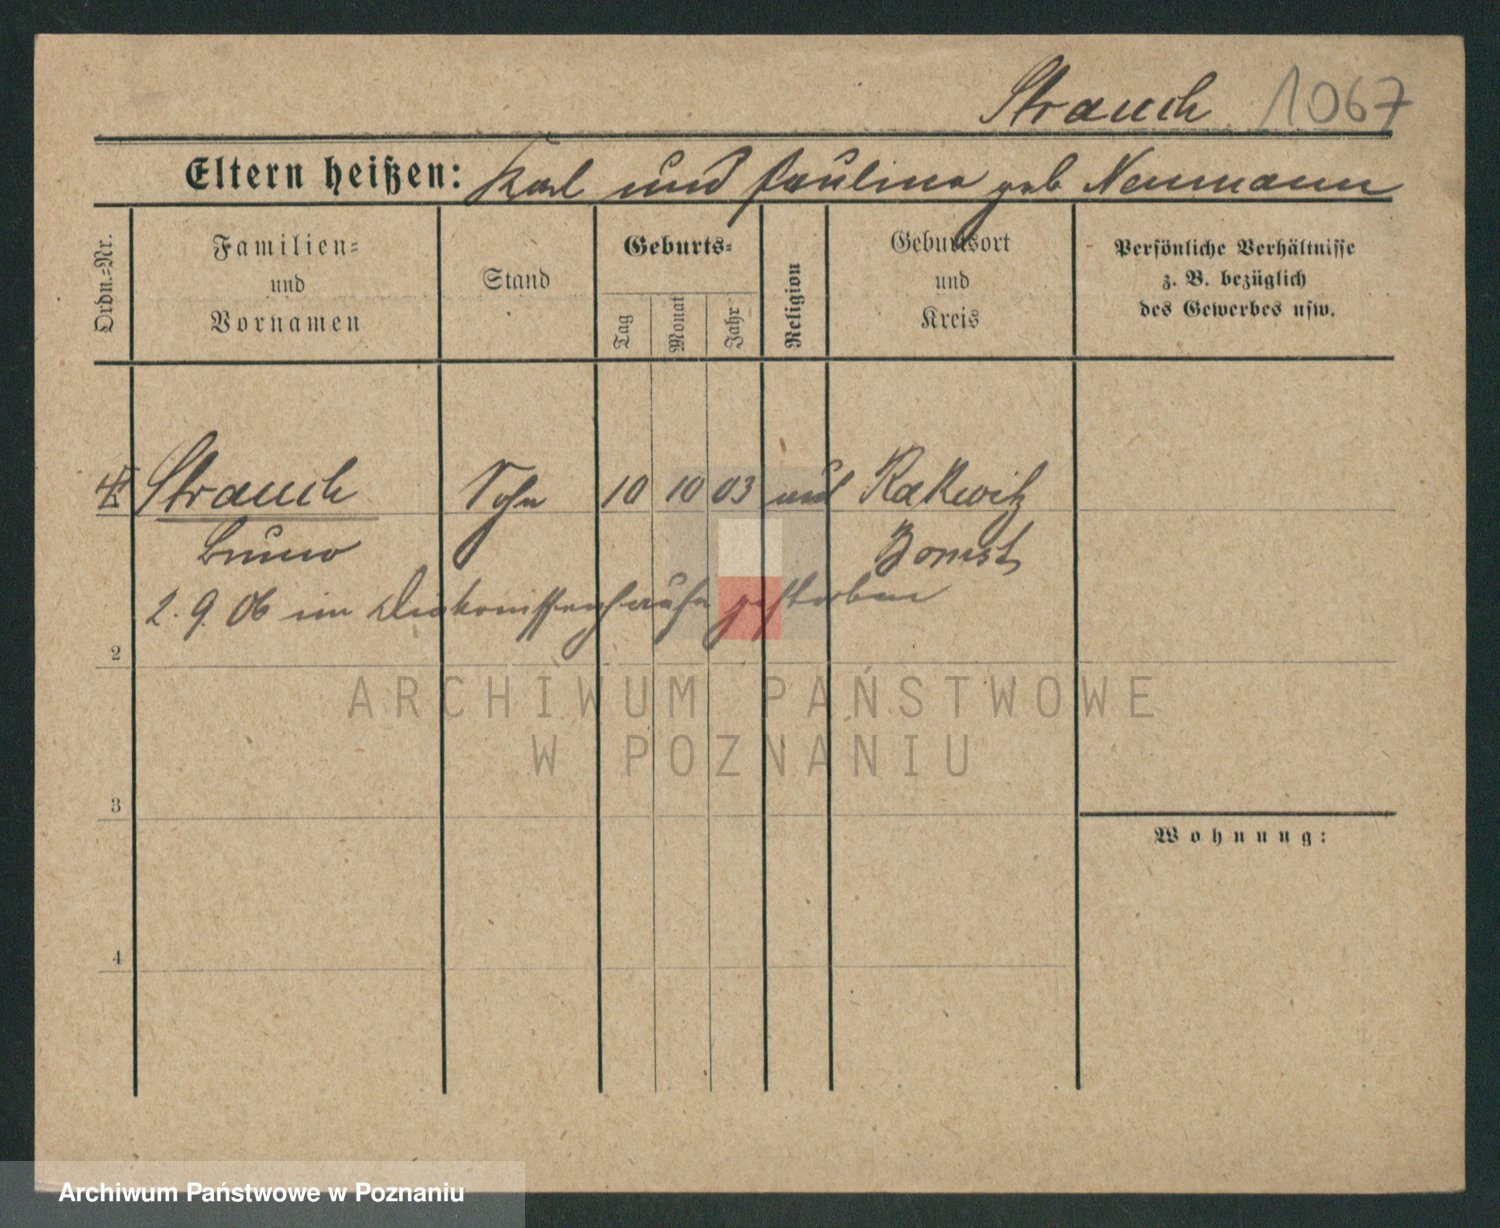 Strauch 1067
Eltern heißen: Karl und Pauline geb Neumann
Ordn.-Nr.
Familien-
und
Vornamen
Stand
Geburts-
Tag
Monat
Jahr
Religion
Geburtsort
und
Kreis
Persönliche Verhältnisse
z. B. bezüglich
des Gewerbes usw.
Strauch Sohn 10 10 03 Rakwitz
Bruno Bomst
2. 9. 06 im Diakonissenhause gestorben
2
ARCHIWUM PAŃSTWOWE
W POZNANIU
3
Wohnung:
4
Archiwum Państwowe w Poznaniu